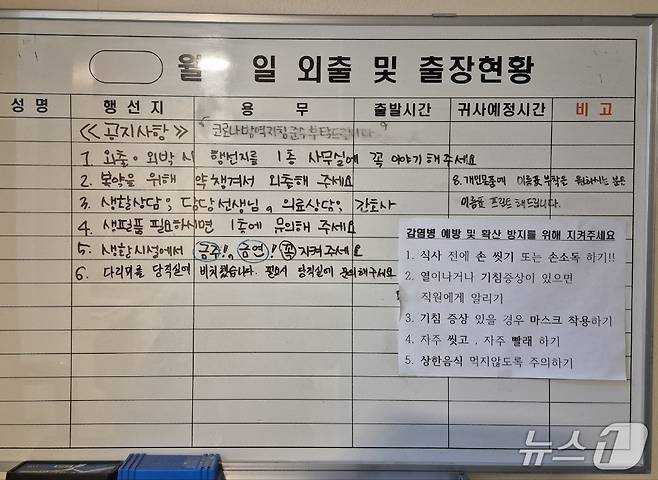 월 일 외출 및 출장현황
성 명 행 선 지 용 무 출발시간 귀사예정시간 비 고
≪공지사항≫ "코로나방역지침준수부탁드립니다"
1. 외출·외박 시 행선지를 1층 사무실에 꼭 이야기해주세요
2. 복약을 위해 약 챙겨서 외출해 주세요
3. 생활상담: 담당선생님, 의료상담: 간호사
4. 생필품 필요하시면 1층에 문의해 주세요
5. 생활시설에서 금주!, 금연! 꼭 지켜주세요
6. 다리미를 당직실에 비치했습니다. 필요시 당직실에 문의해주세요
8. 개인물품에 이름표 부착을 원하시는 분은
이름표 프린트해드립니다.
감염병 예방 및 확산 방지를 위해 지켜주세요
1. 식사 전에 손 씻기 또는 손소독 하기!!
2. 열이나거나 기침증상이 있으면
직원에게 알리기
3. 기침 증상 있을 경우 마스크 착용하기
4. 자주 씻고, 자주 빨래 하기
5. 상한음식 먹지않도록 주의하기
뉴스1